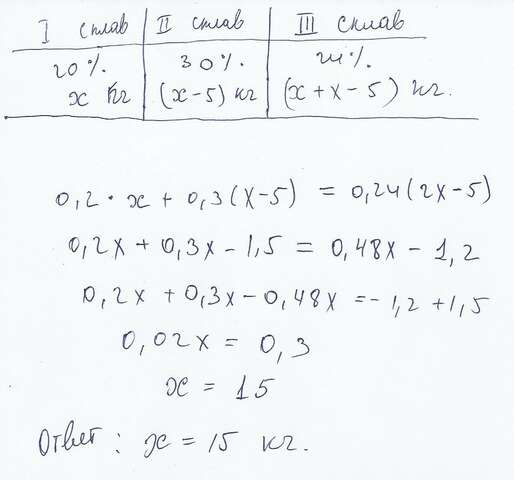 I сплав II сплав III сплав
20%. 30%. 24%.
x кг (x-5) кг (x+x-5) кг.
0,2·x + 0,3(x-5) = 0,24(2x-5)
0,2x + 0,3x - 1,5 = 0,48x - 1,2
0,2x + 0,3x - 0,48x = -1,2 + 1,5
0,02x = 0,3
x = 15
Ответ: x = 15 кг.